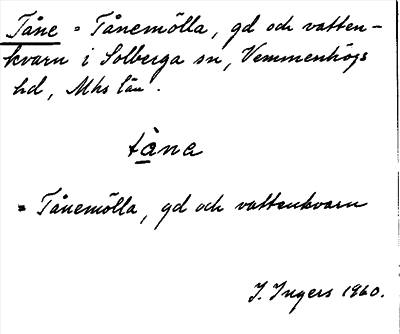 Tåne = Tånemölla, gd och vatten-
kvarn i Solberga sn, Vemmenhögs
hd, Mhs län.
tåna
= Tånemölla, gd och vattenkvarn
I. Ingers 1960.